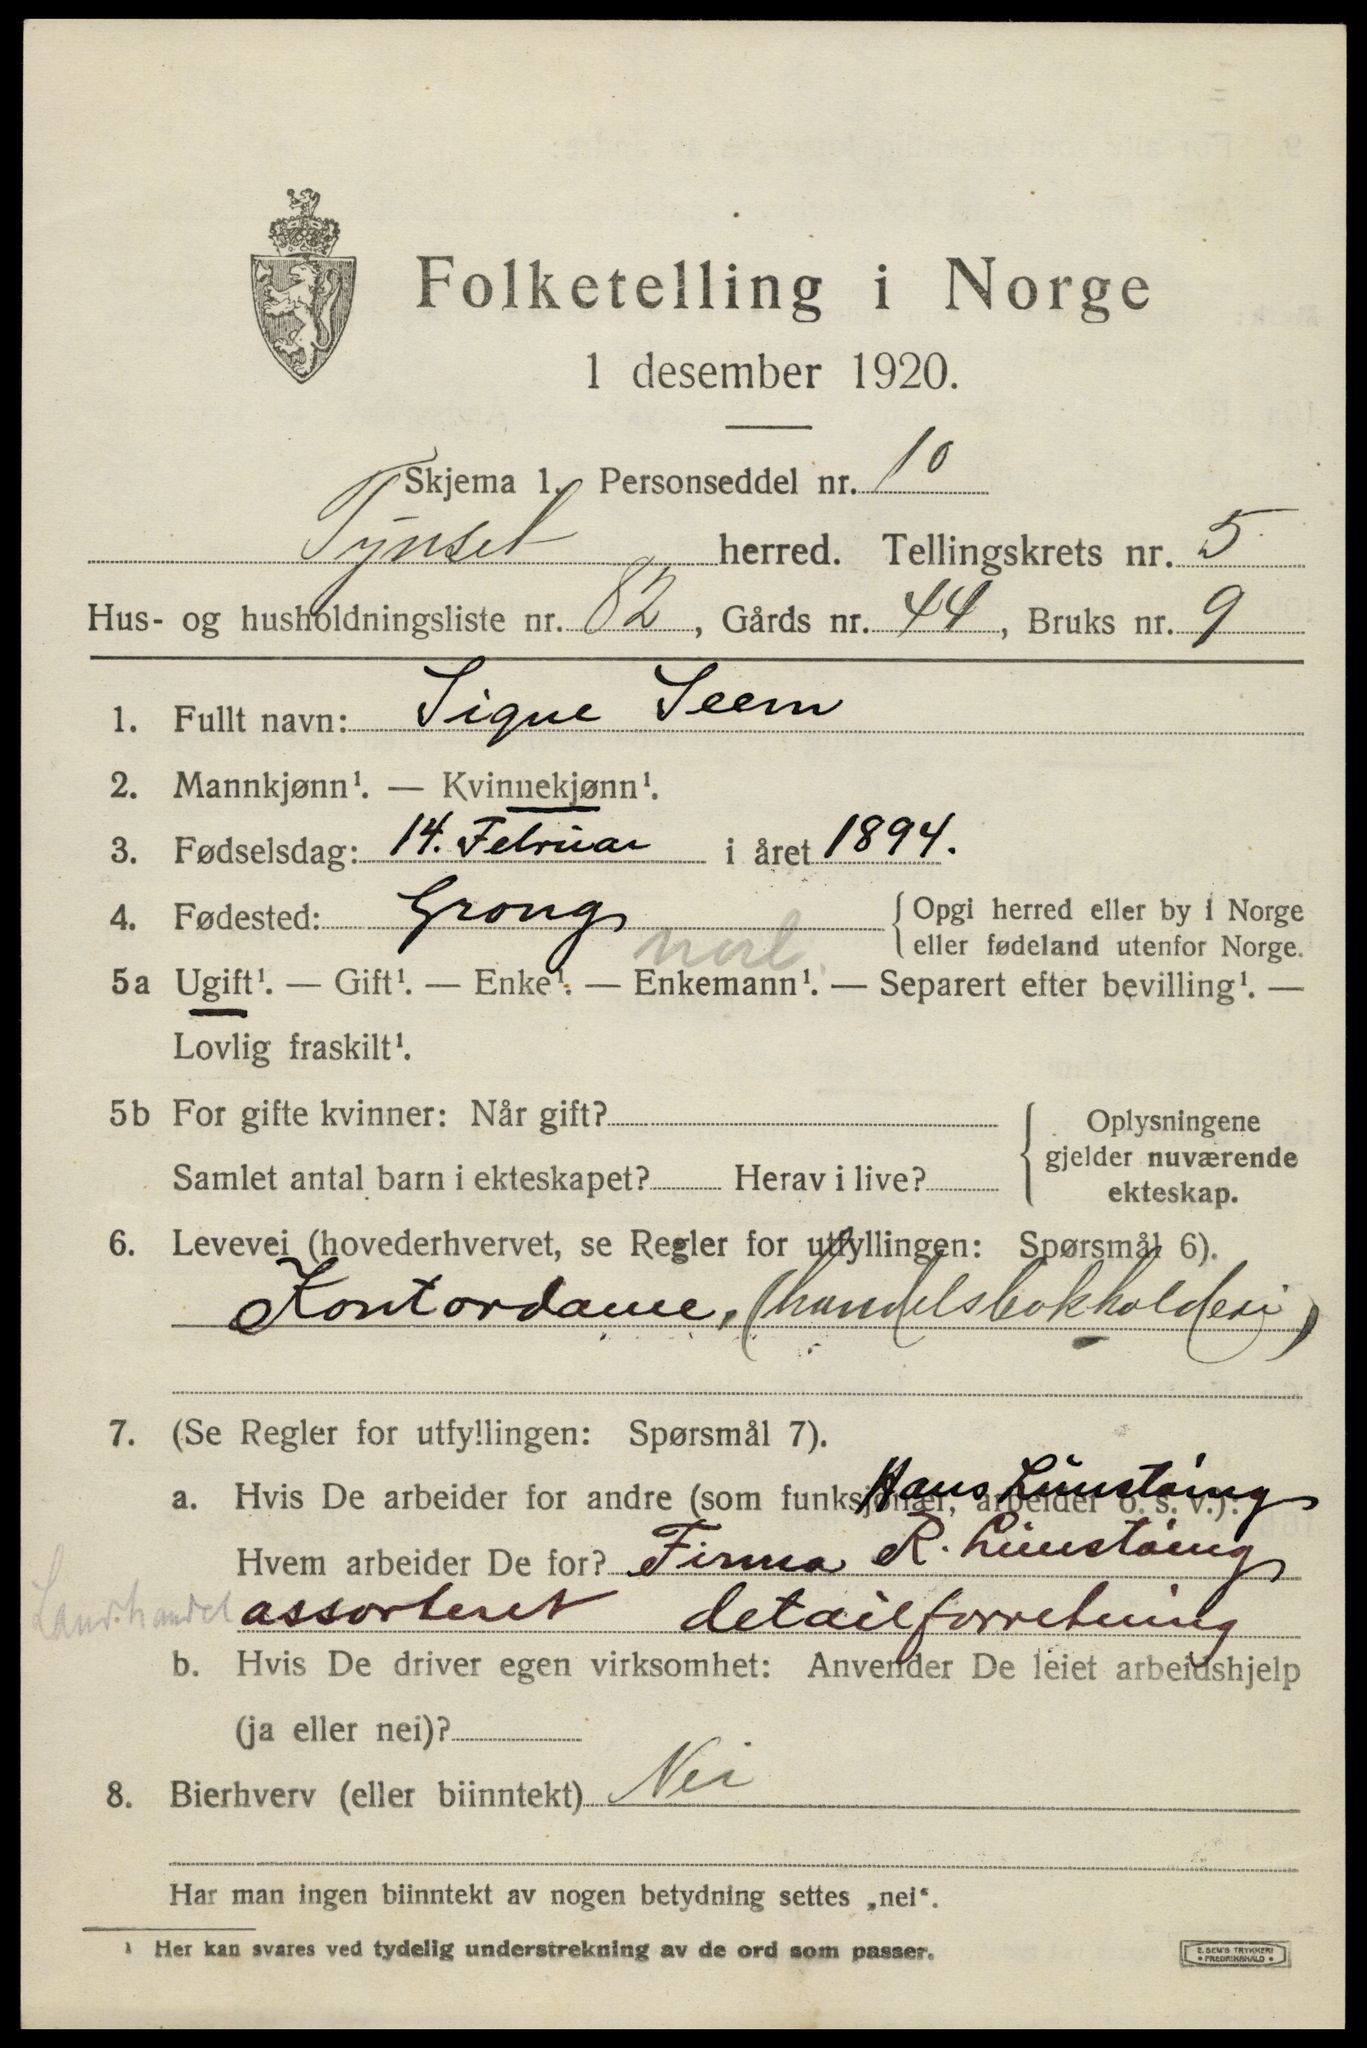 Folketelling i Norge
1 desember 1920.
Skjema 1. Personseddel nr. 10
Tynset herred. Tellingskrets nr. 5
Hus- og husholdningsliste nr. 82, Gårds nr. 44, Bruks nr. 9
1. Fullt navn: Signe Seem
2. Mannkjønn¹. — Kvinnekjønn¹.
3. Fødselsdag: 14. Februar i året 1894.
4. Fødested: Grong { Opgi herred eller by i Norge
eller fødeland utenfor Norge.
5a Ugift¹. — Gift¹. — Enke¹. — Enkemann¹. — Separert efter bevilling¹. —
Lovlig fraskilt¹.
5b For gifte kvinner: Når gift? { Oplysningene
gjelder nuværende
Samlet antal barn i ekteskapet? Herav i live?
ekteskap.
6. Levevei (hovederhvervet, se Regler for utfyllingen: Spørsmål 6).
Kontordame, (handelsbokholderi)
7. (Se Regler for utfyllingen: Spørsmål 7).
a. Hvis De arbeider for andre (som funksjonær, arbeider o. s. v.): Hans
Hvem arbeider De for? Firma R.
Landhandel assorteret detailforretning
b. Hvis De driver egen virksomhet: Anvender De leiet arbeidshjelp
(ja eller nei)?
8. Bierhverv (eller biinntekt) Nei
Har man ingen biinntekt av nogen betydning settes „nei“.
¹ Her kan svares ved tydelig understrekning av de ord som passer.
E. SEM'S TRYKKERI
• FREDRIKSHALD •